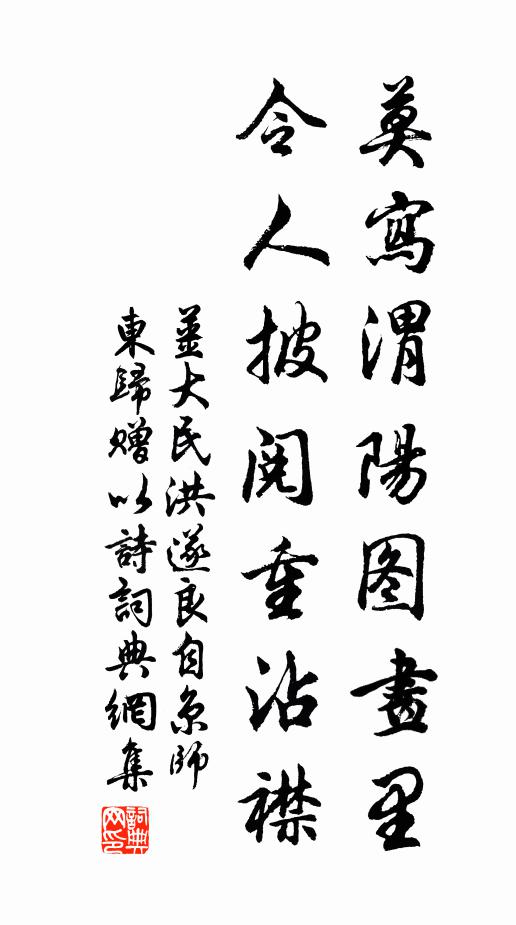 莫寫渭陽图畫里
令人披閱重沾襟
姜大民洪遂良自京師
東歸贈以詩詞典網集
詞典網印